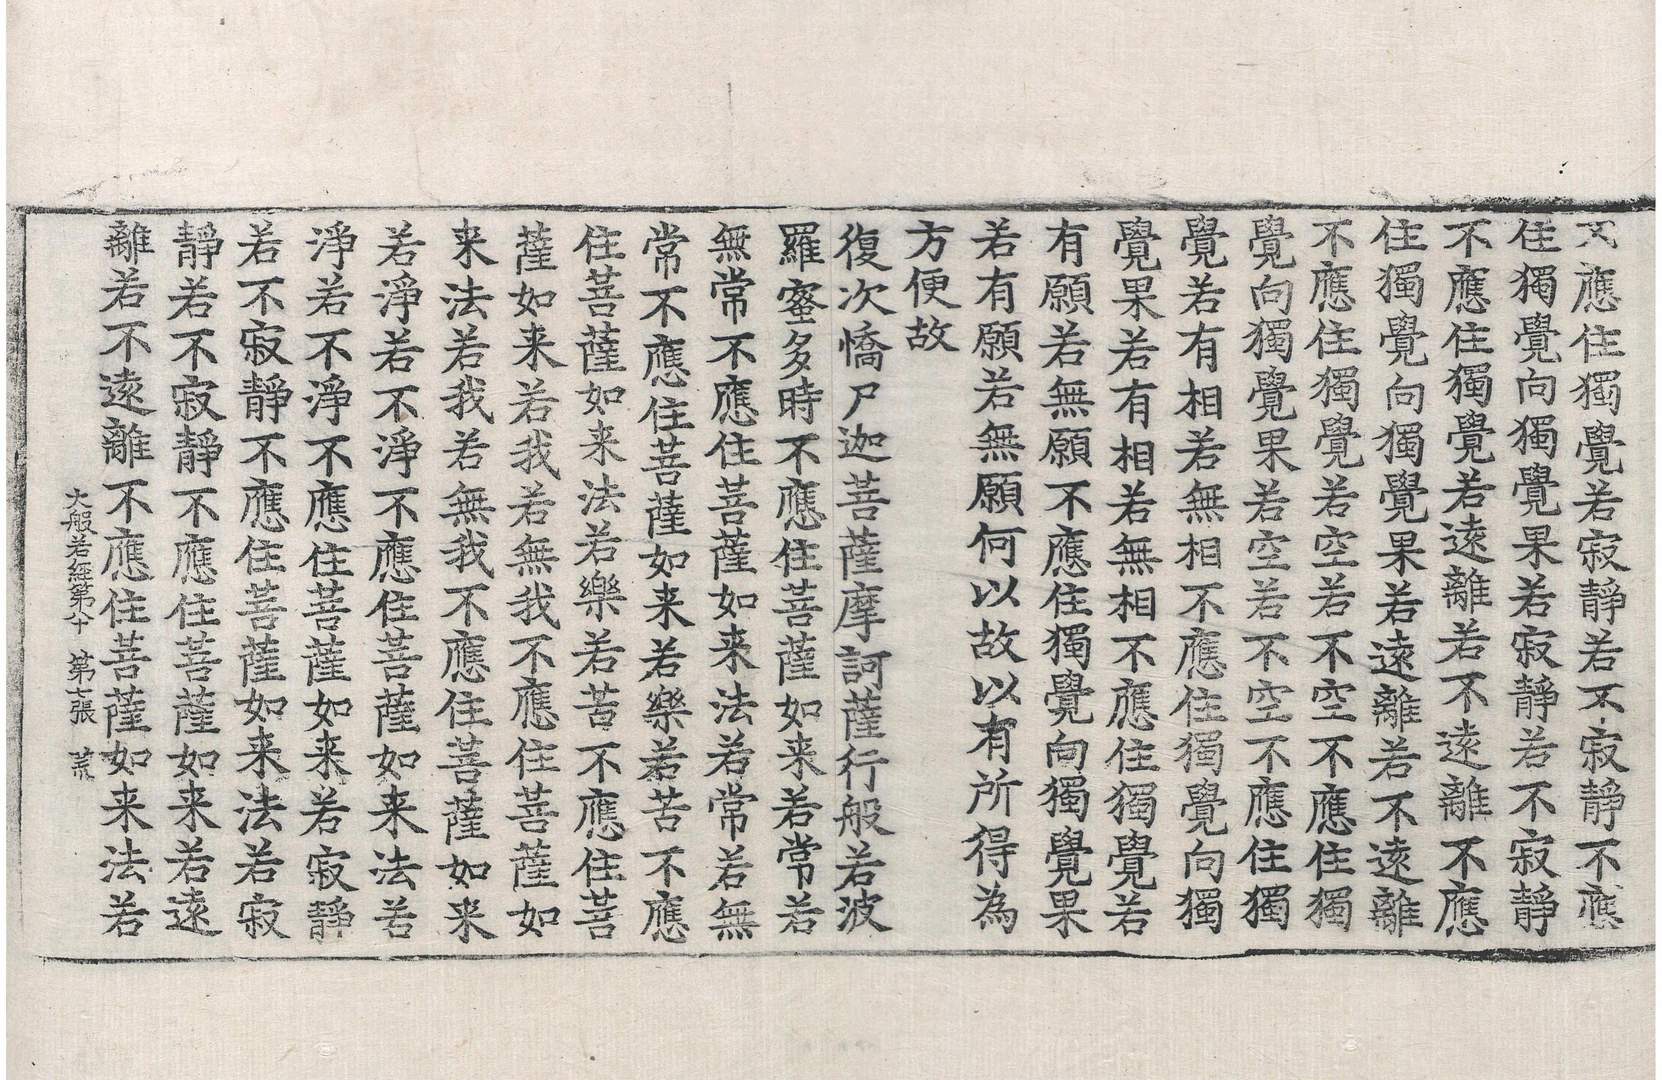 不應住獨覺若寂靜若不寂靜不應
住獨覺向獨覺果若寂靜若不寂靜
不應住獨覺若遠離若不遠離不應
住獨覺向獨覺果若遠離若不遠離
不應住獨覺若空若不空不應住獨
覺向獨覺果若空若不空不應住獨
覺若有相若無相不應住獨覺向獨
覺果若有相若無相不應住獨覺若
有願若無願不應住獨覺向獨覺果
若有願若無願何以故以有所得為
方便故
復次憍尸迦菩薩摩訶薩行般若波
羅蜜多時不應住菩薩如来若常若
無常不應住菩薩如来法若常若無
常不應住菩薩如来若樂若苦不應
住菩薩如来法若樂若苦不應住菩
薩如来若我若無我不應住菩薩如
来法若我若無我不應住菩薩如来
若淨若不淨不應住菩薩如来法若
淨若不淨不應住菩薩如来若寂靜
若不寂靜不應住菩薩如来法若寂
靜若不寂靜不應住菩薩如来若遠
離若不遠離不應住菩薩如来法若
大般若經第八十 第七張 荒